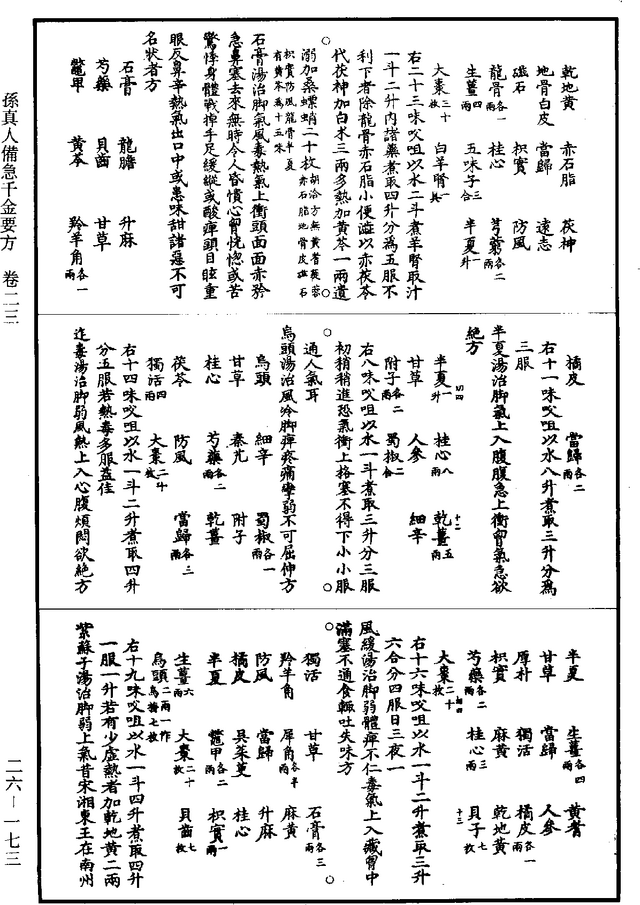 乾地黃　赤石脂　茯神
地骨白皮　當歸　遠志
磁石　枳實　防風
龍骨各一兩　桂心　芎藭各二兩
生薑四兩　五味子三合　半夏一升
大棗三十枚　白羊腎一具
右二十三味㕮咀以水二斗煮羊腎取汁
一斗二升內諸藥煮取四升分為五服不
利下者除龍骨赤石脂小便澁以赤茯苓
代茯神加白朮三兩多熱加黃芩一兩遺
溺加桑螵蛸二十枚胡洽方無黃耆茯苓赤石脂地骨皮磁石
枳實防風龍骨半夏有黃芩為十五味
石膏湯治脚氣風毒熱氣上衝頭面面赤矜
急鼻塞去來無時令人昏憒心胷恍惚或苦
驚悸身體戰掉手足緩縱或酸痺頭目眩重
眼反鼻辛熱氣出口中或患味甜諸惡不可
名狀者方
石膏　龍膽　升麻
芍藥　貝齒　甘草
鱉甲　黃芩　羚羊角各一兩
橘皮　當歸各二兩
右十一味㕮咀以水八升煮取三升分為
三服
半夏湯治脚氣上入腹腹急上衝胷氣急欲
絕方
半夏一升切四　桂心八兩　乾薑五兩十二
甘草　人參　細辛
附子各二兩　蜀椒二合
右八味㕮咀以水一斗煮取三升分三服
初稍稍進恐氣衝上格塞不得下小小服
通人氣耳
烏頭湯治風冷脚痺疼痛攣弱不可屈伸方
烏頭　細辛　蜀椒各一兩
甘草　秦艽　附子
桂心　芍藥各二兩　乾薑
茯苓　防風　當歸各三兩
獨活四兩　大棗二十枚
右十四味㕮咀以水一斗二升煮取四升
分五服若熱毒多服益佳
追毒湯治脚弱風熱上入心腹煩悶欲絕方
半夏　生薑各四兩　黃耆
甘草　當歸　人參
厚朴　獨活　橘皮各一兩
枳實　麻黃　乾地黃
芍藥各二兩　桂心三兩　貝子七枚十三
大棗二十枚切四
右十六味㕮咀以水一斗二升煮取三升
六合分四服日三夜一
風緩湯治脚弱體痺不仁毒氣上入藏胷中
滿塞不通食輒吐失味方
獨活　甘草　石膏各三兩
羚羊角　犀角各半兩　麻黃
防風　當歸　升麻
橘皮　吳茱萸　桂心
半夏　鱉甲各二兩　枳實一兩
生薑六兩　大棗二十枚　貝齒七枚
烏頭二兩一作烏梅七枚
右十九味㕮咀以水一斗四升煮取四升
一服一升若有少虛熱者加乾地黃二兩
紫蘇子湯治脚弱上氣昔宋湘東王在南州
孫真人備急千金要方　卷二三
二六—一七三